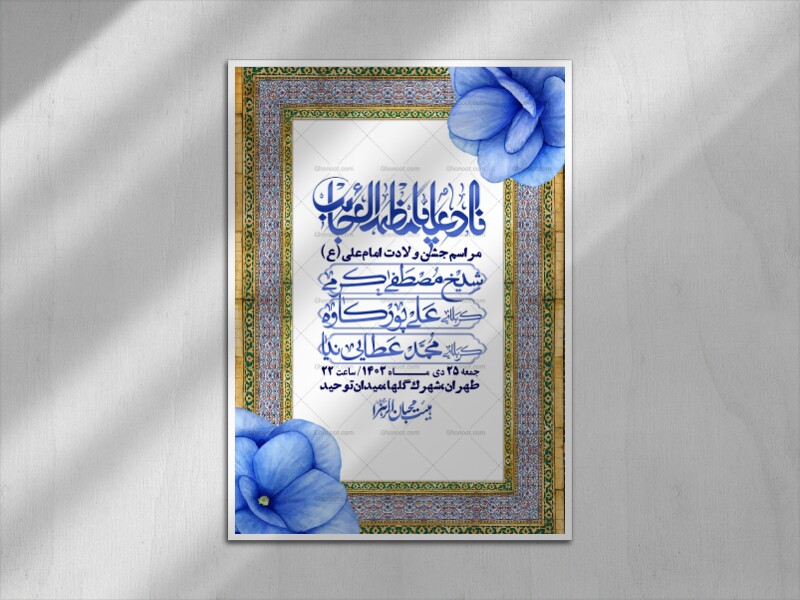 ناد علیا مظهر العجایب
مراسم جشن ولادت امام علی (ع)
شیخ مصطفی کرمی
کربلائی علی پورکاوه
کربلائی محمد عطایی نیا
جمعه ۲۵ دی مــاه ۱۴۰۲/ ساعت ۲۲
طهران،شهرك گلها،میدان توحید
هیئت محبان الزهرا
Ghonoot.com